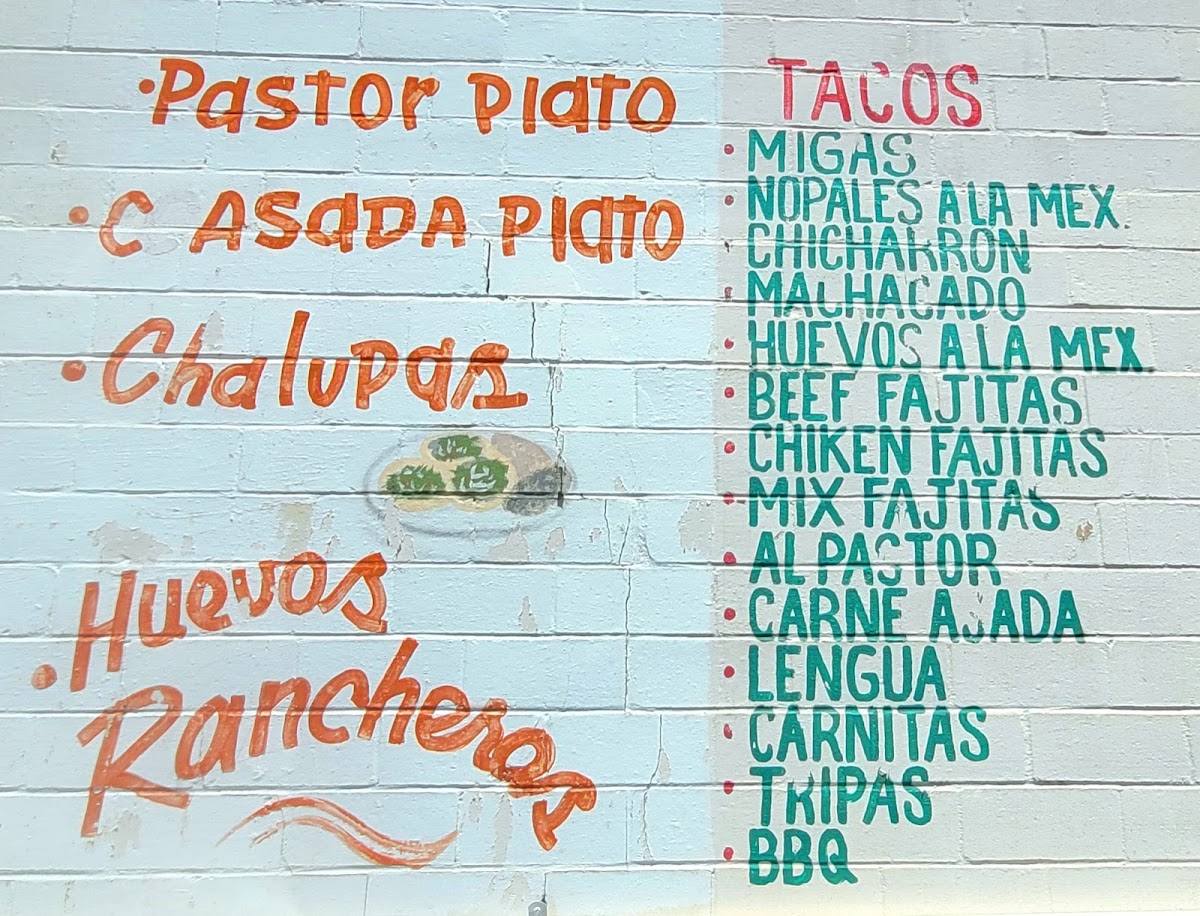 • Pastor Plato
• C ASADA Plato
• Chalupas
• Huevos
Rancheros
TACOS
• MIGAS
• NOPALES A LA MEX.
• CHICHARRON
• MACHACADO
• HUEVOS A LA MEX.
• BEEF FAJITAS
• CHIKEN FAJITAS
• MIX FAJITAS
• AL PASTOR
• CARNE ASADA
• LENGUA
• CARNITAS
• TRIPAS
• BBQ